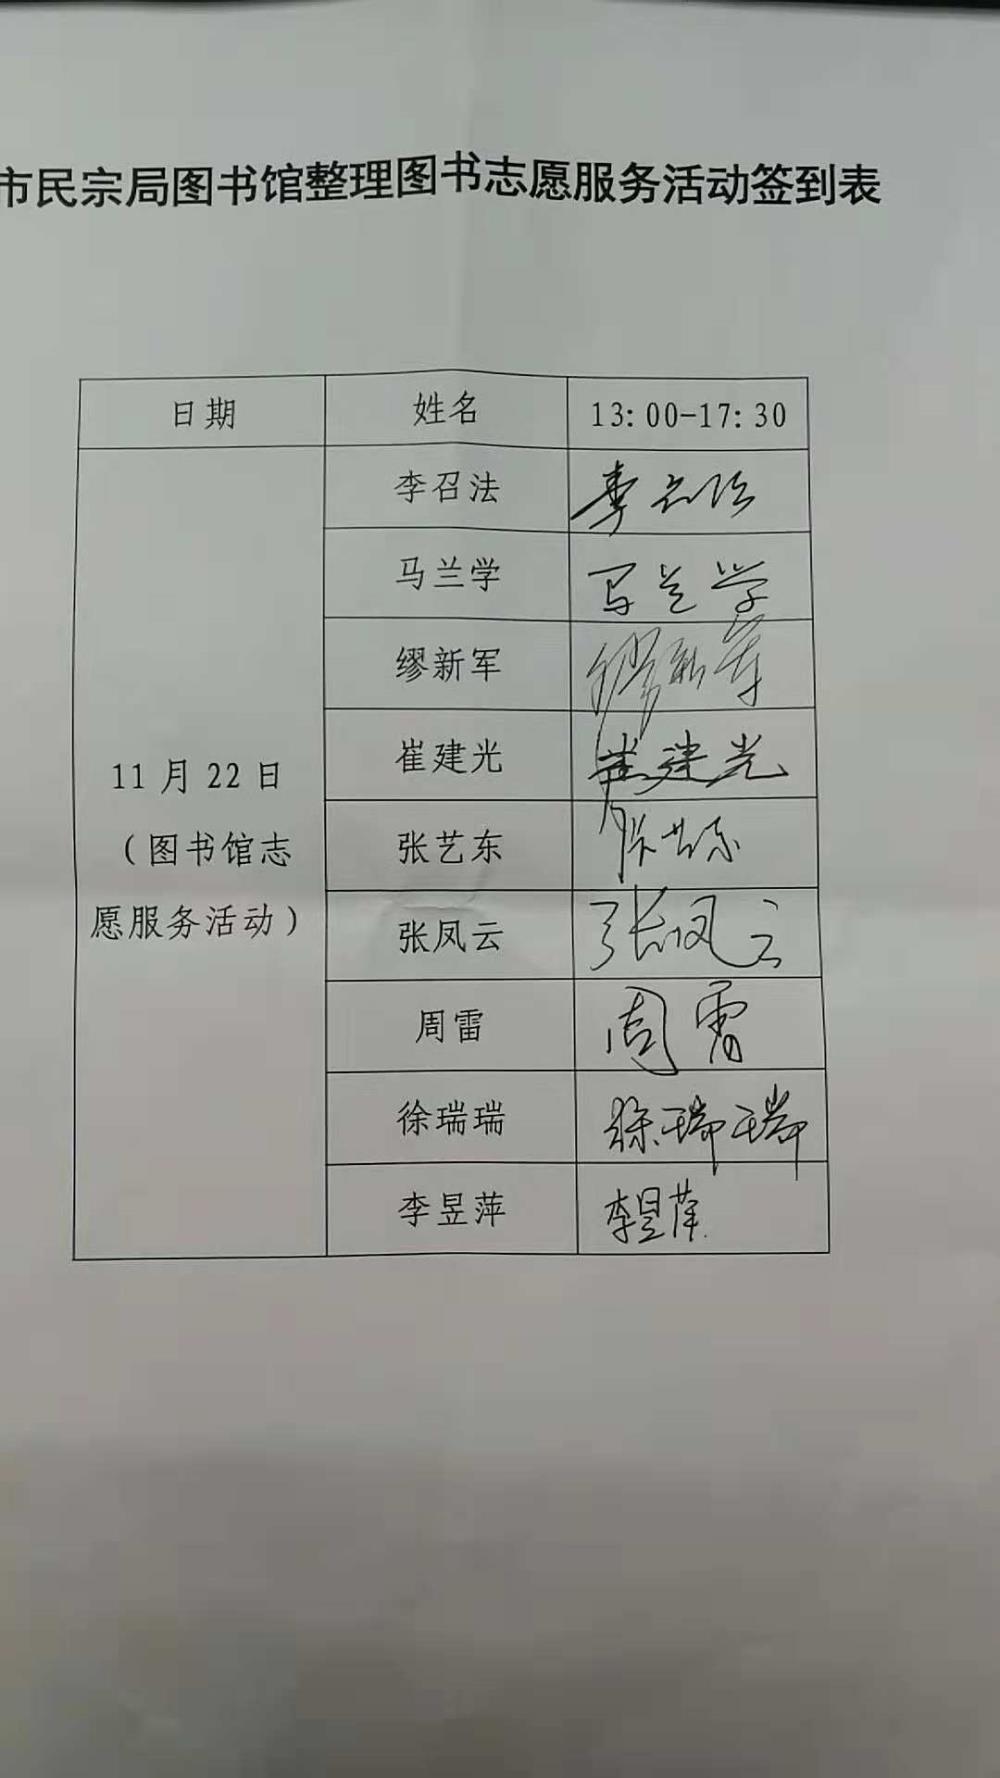 市民宗局图书馆整理图书志愿服务活动签到表
日期 姓名 13:00-17:30
李召法 李召法
马兰学 马兰学
缪新军 缪新军
崔建光 崔建光
11月22日
（图书馆志
愿服务活动）
张艺东 张艺东
张凤云 张凤云
周雷 周雷
徐瑞瑞 徐瑞瑞
李昱萍 李昱萍